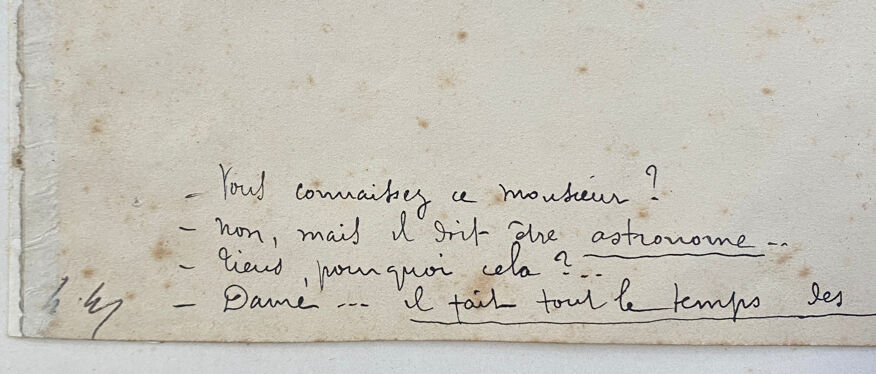 - Vous connaissez ce monsieur ?
- non, mais il doit être astronome ..
- tiens, pourquoi cela ? ...
- Dame --- il fait tout le temps les